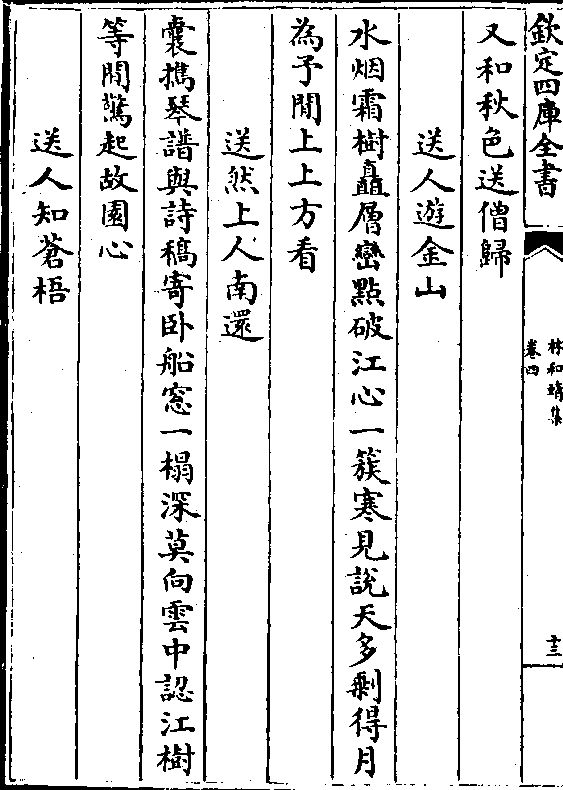 欽定四庫全書
林和靖集
卷四
十三
又和秋色送僧歸
送人遊金山
水烟霜樹矗層巒點破江心一簇寒見說天多剰得月
為予閒上上方看
送然上人南還
囊擕琴譜與詩稿寄卧船窓一榻深莫向雲中認江樹
等閒驚起故園心
送人知蒼梧